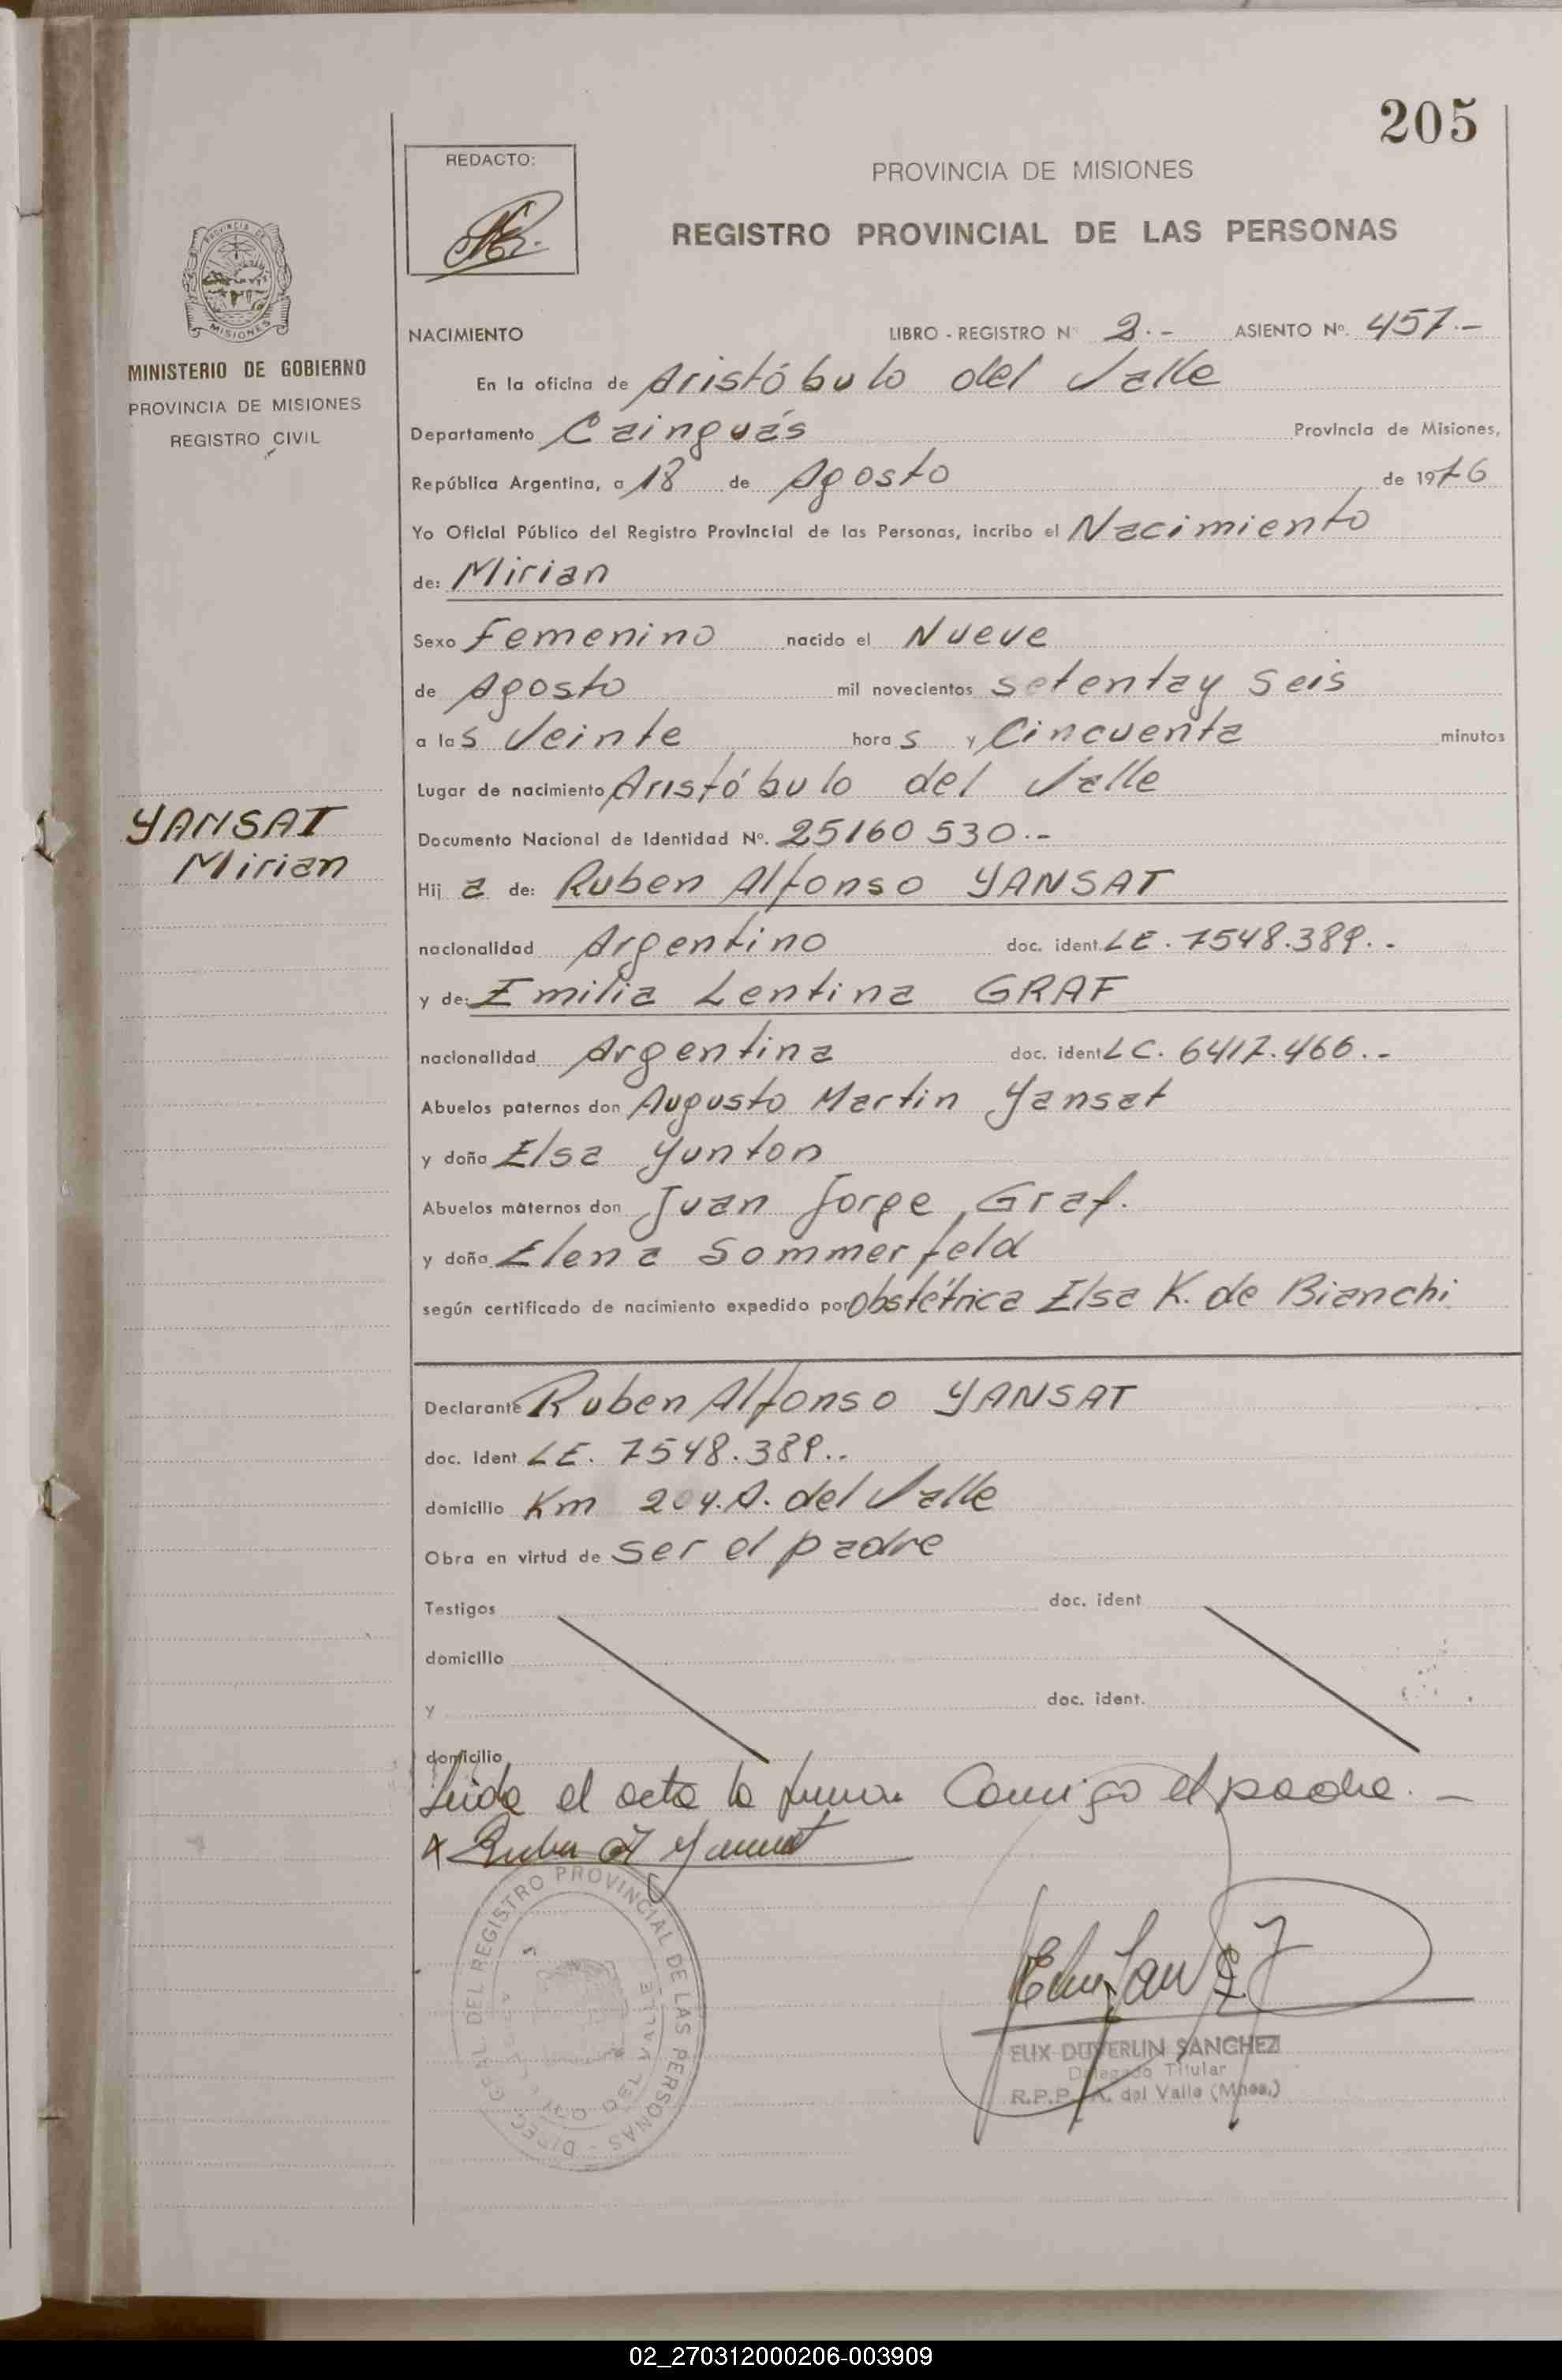 205
REDACTO:
PROVINCIA DE MISIONES
REGISTRO PROVINCIAL DE LAS PERSONAS
PROVINCIA DE
MISIONES
MINISTERIO DE GOBIERNO
PROVINCIA DE MISIONES
REGISTRO CIVIL
NACIMIENTO LIBRO - REGISTRO Nº 2.- ASIENTO Nº. 457.-
En la oficina de Aristóbulo del Valle
Departamento Cainguás Provincia de Misiones,
República Argentina, a 18 de Agosto de 1976
Yo Oficial Público del Registro Provincial de las Personas, incribo el Nacimiento
de: Mirian
Sexo Femenino nacido el Nueve
de Agosto mil novecientos setentay seis
a las Veinte horas y Cincuenta minutos
Lugar de nacimiento Aristóbulo del Valle
YANSAT
Mirian
Documento Nacional de Identidad Nº. 25160530.-
Hija de: Ruben Alfonso YANSAT
nacionalidad Argentino doc. ident. LE. 7548.389..
y de: Emilia Lentina GRAF
nacionalidad Argentina doc. ident LC. 6417.466..
Abuelos paternos don Augusto Martin Yansat
y doña Elsa Yunton
Abuelos maternos don Juan Jorge Graf.
y doña Elena Sommerfeld
según certificado de nacimiento expedido por Obstétrica Elsa K. de Bianchi
Declarante Ruben Alfonso YANSAT
doc. Ident LE. 7548.389..
domicilio Km 204. A. del Valle
Obra en virtud de ser el padre
Testigos doc. ident
domicilio
y doc. ident.
domicilio
Leida el acta la firma Comigo el padre. -
x Ruben A Yansat
DIREC. GRAL. DEL REGISTRO PROVINCIAL DE LAS PERSONAS
DEL VALLE
ELIX DUVERLIN SANCHEZ
Delegado Titular
R.P.P. A. del Valle (Mnes.)
02_270312000206-003909